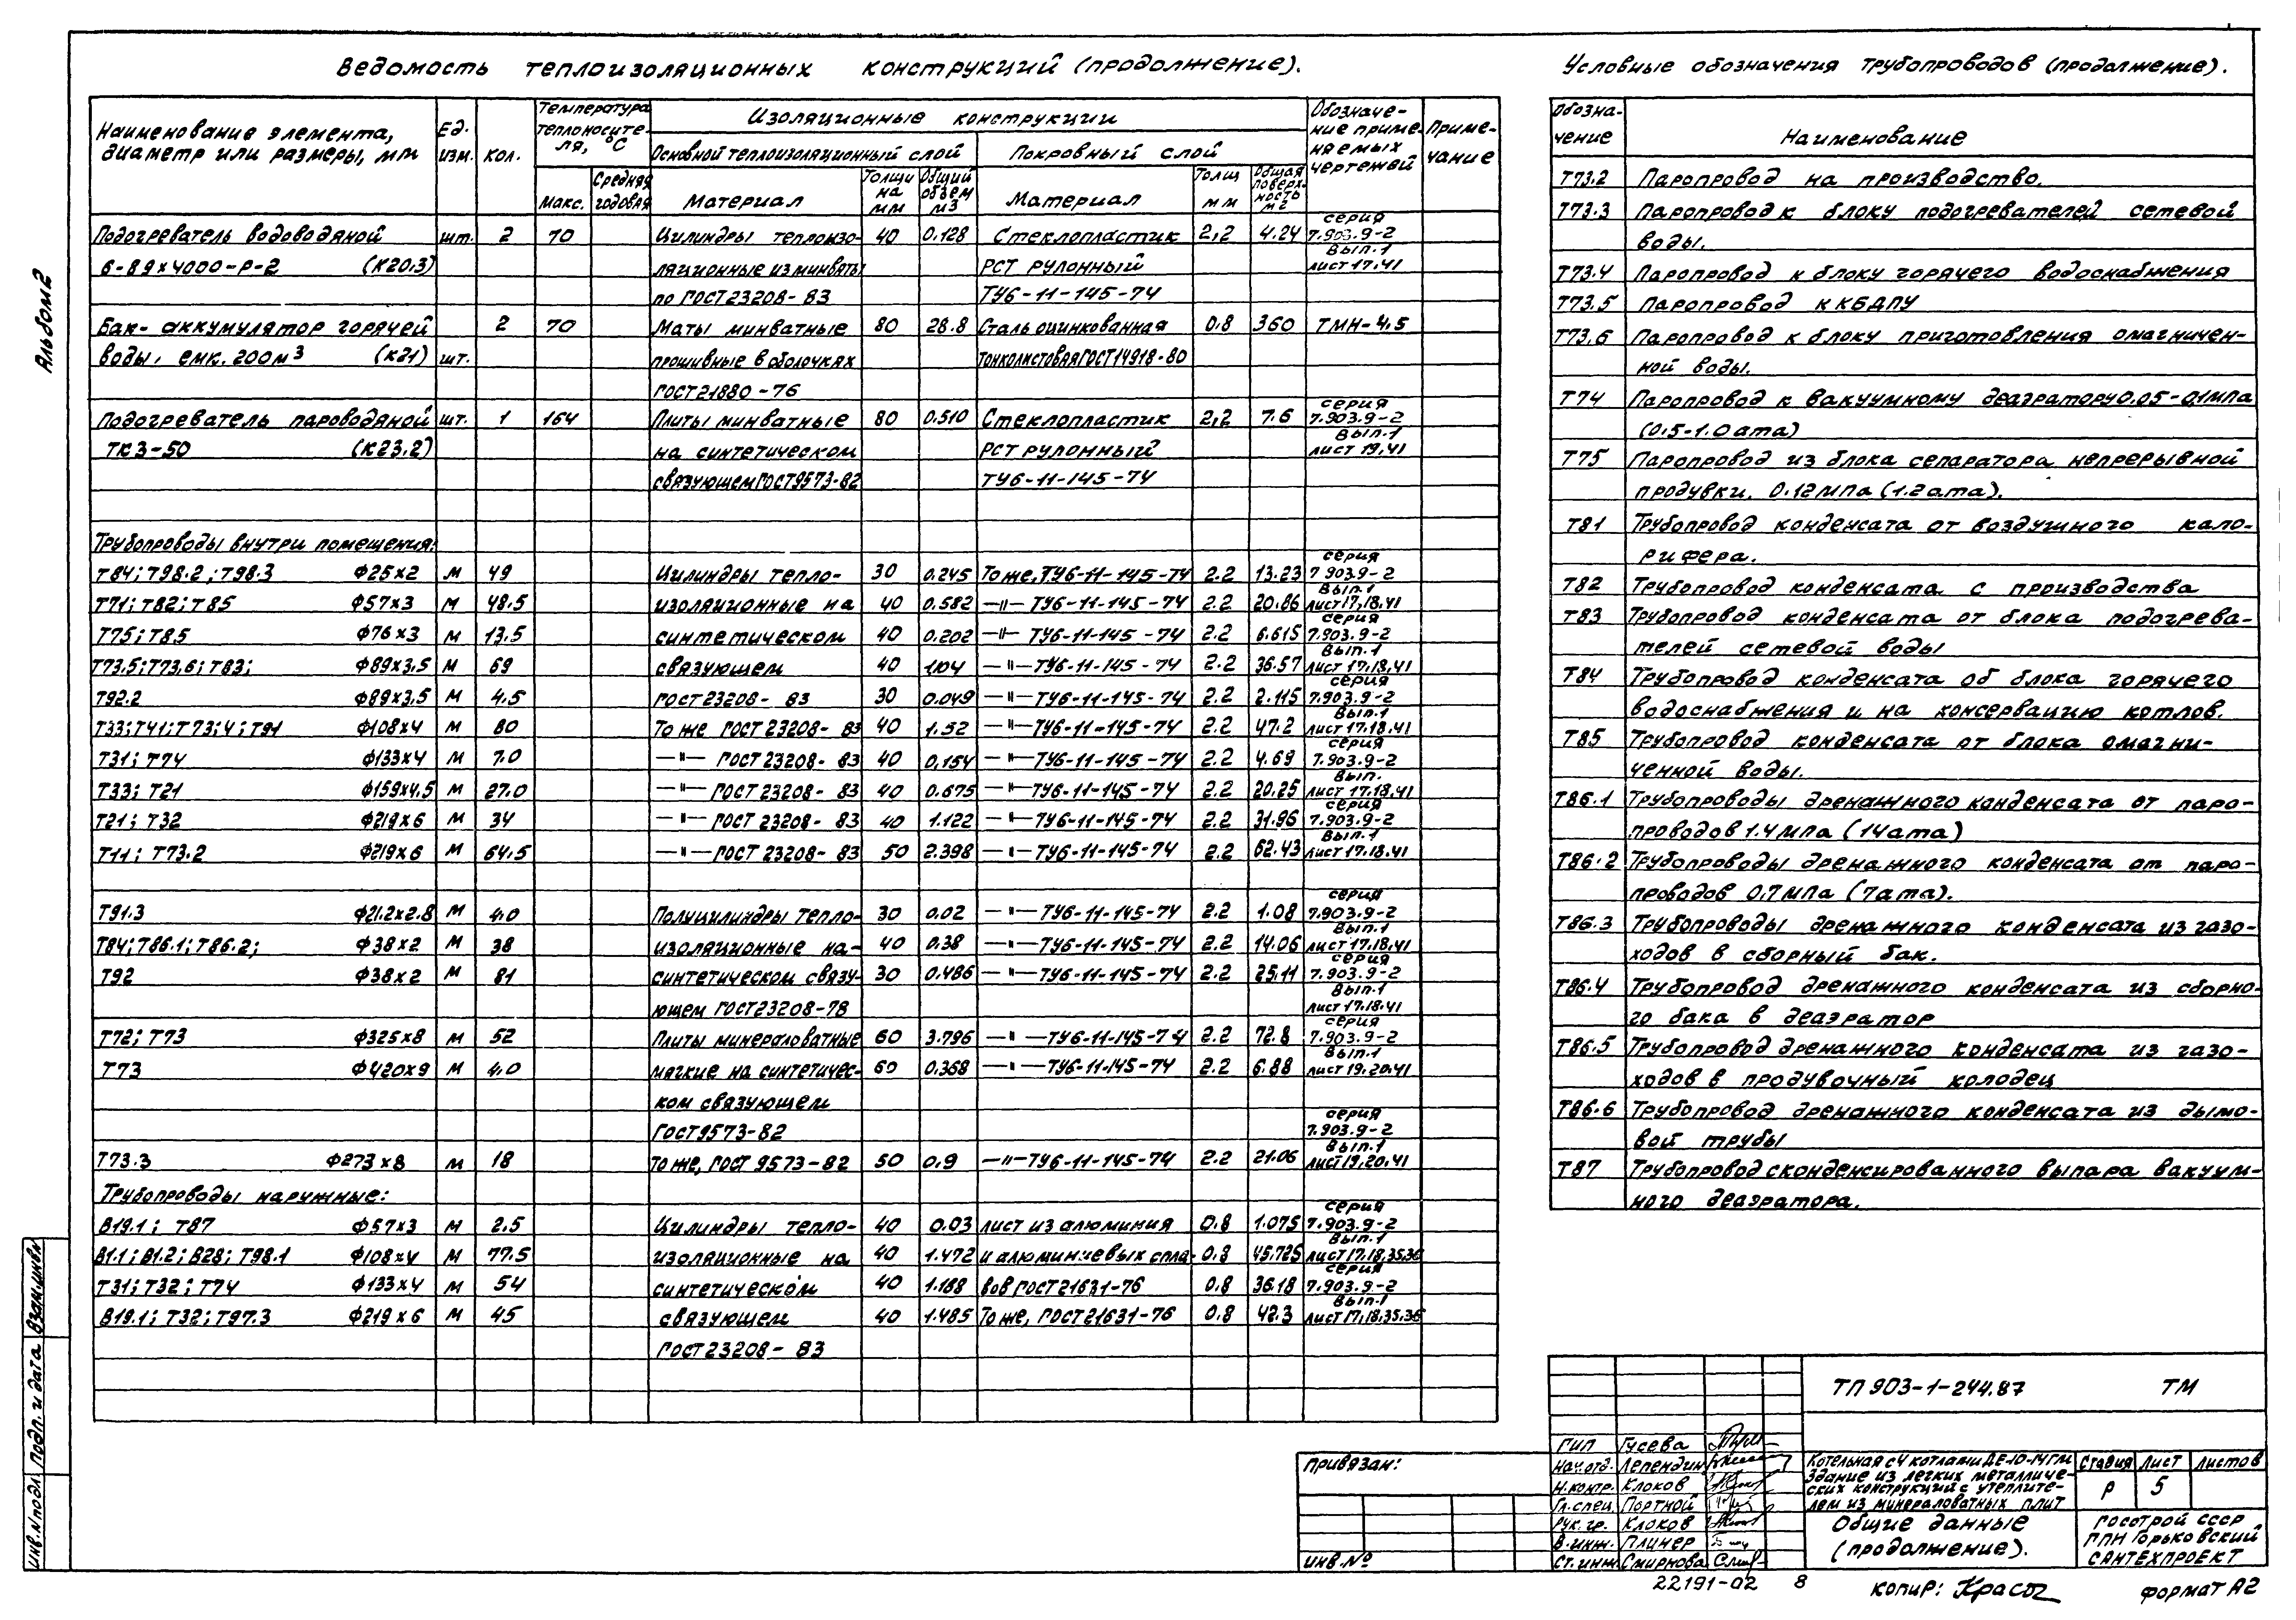 Ведомость теплоизоляционных конструкций (продолжение).
Наименование элемента, диаметр или размеры, мм
Ед. изм.
кол.
Температура теплоносителя, °С
Макс.
Средняя годовая
Изоляционные конструкции
Основной теплоизоляционный слой
Покровный слой
Материал
Толщина мм
Общий объем м3
Материал
Толщ мм
Общая поверхность м2
Обозначение применяемых чертежей
Примечание
Подогреватель водоводяной шт. 2 70 Цилиндры теплоизо- 40 0.128 Стеклопластик 2,2 4.24 серия 7.903.9-2
6-89х4000-Р-2 (К20.3) ляционные из минваты РСТ рулонный Вып.1 лист 17.41
по ГОСТ 23208-83 ТУ6-11-145-74
Бак-аккумулятор горячей 2 70 Маты минватные 80 28.8 Сталь оцинкованная 0.8 360 ТМН-4.5
воды, емк. 200м3 (К21) шт. прошивные в оболочках тонколистовая ГОСТ14918-80
ГОСТ21880-76
Подогреватель пароводяной шт. 1 164 Плиты минватные 80 0.510 Стеклопластик 2,2 7.6 серия 7.903.9-2
ТКЗ-50 (К23.2) на синтетическом РСТ рулонный Вып.1 лист 19,41
связующем ГОСТ9573-82 ТУ6-11-145-74
Трубопроводы внутри помещения:
Т84; Т98.2; Т98.3 Ф25х2 м 49 Цилиндры тепло- 30 0.245 То же, ТУ6-11-145-74 2.2 13.23 серия 7 903.9-2
Т71; Т82; Т85 Ф57х3 м 48.5 изоляционные на 40 0.582 —"— ТУ6-11-145-74 2.2 20.86 Вып.1 лист 17,18,41
Т75; Т85 Ф76х3 м 13.5 синтетическом 40 0.202 —"— ТУ6-11-145-74 2.2 6.615 серия 7.903.9-2
Т73.5; Т73,6; Т83; Ф89х3,5 м 69 связующем 40 1.04 —"— ТУ6-11-145-74 2.2 36.57 Вып.1 лист 17.18,41
Т92.2 Ф89х3,5 м 4.5 ГОСТ 23208-83 30 0.049 —"— ТУ6-11-145-74 2.2 2.115 серия 7.903.9-2
Т33; Т41; Т73;4; Т91 Ф108х4 м 80 То же ГОСТ 23208-83 40 1.52 —"— ТУ6-11-145-74 2.2 47.2 Вып.1 лист 17.18.41
Т31; Т74 Ф133х4 м 7.0 —"— ГОСТ 23208-83 40 0,154 —"— ТУ6-11-145-74 2.2 4.69 серия 7.903.9-2
Т33; Т21 Ф159х4.5 м 27.0 —"— ГОСТ 23208-83 40 0.675 —"— ТУ6-11-145-74 2.2 20.25 Вып. лист 17.18.41
Т21; Т32 Ф219х6 м 34 —"— ГОСТ 23208-83 40 1.122 —"— ТУ6-11-145-74 2.2 31.96 серия 7.903.9-2
Т11; Т73.2 Ф219х6 м 64.5 —"— ГОСТ 23208-83 50 2.398 —"— ТУ6-11-145-74 2.2 62.43 Вып.1 лист 17.18.41
Т91.3 Ф21.2х2.8 м 4.0 Полуцилиндры тепло- 30 0.02 —"— ТУ6-11-145-74 2.2 1.08 серия 7.903.9-2
Т84; Т86.1; Т86.2; Ф38х2 м 38 изоляционные на- 40 0.38 —"— ТУ6-11-145-74 2.2 14.06 Вып.1 лист 17.18.41
Т92 Ф38х2 м 81 синтетическом связу- 30 0.486 —"— ТУ6-11-145-74 2.2 25.11 серия 7.903.9-2
ющем ГОСТ23208-78 Вып.1 лист 17.18.41
Т72; Т73 Ф325х8 м 52 Плиты минераловатные 60 3.796 —"— ТУ6-11-145-74 2.2 72.8 серия 7.903.9-2
Т73 Ф420х9 м 4.0 мягкие на синтетичес- 60 0.368 —"— ТУ6-11-145-74 2.2 6.88 Вып.1 лист 19.20.41
ком связующем
ГОСТ9573-82 серия 7.903.9-2
Т73.3 Ф273х8 м 18 То же, ГОСТ 9573-82 50 0.9 —"— ТУ6-11-145-74 2.2 21.06 Вып.1 лист 19,20,41
Трубопроводы наружные:
В19.1; Т87 Ф57х3 м 2.5 Цилиндры тепло- 40 0.03 лист из алюминия 0.8 1.075 серия 7.903.9-2
В1.1; В1.2; В28; Т98.1 Ф108х4 м 77.5 изоляционные на 40 1.472 и алюминиевых спла- 0.8 45.725 Вып.1 лист 17.18,35,36
Т31; Т32; Т74 Ф133х4 м 54 синтетическом 40 1.188 вов ГОСТ21631-76 0.8 36.18 серия 7.903.9-2
В19.1; Т32; Т97.3 Ф219х6 м 45 связующем 40 1.485 То же, ГОСТ 21631-76 0.8 42.3 Вып.1 лист 17,18,35,36
ГОСТ 23208-83
Условные обозначения трубопроводов (продолжение).
Обозна-чение Наименование
Т73.2 Паропровод на производство.
Т73.3 Паропровод к блоку подогревателей сетевой
воды.
Т73.4 Паропровод к блоку горячего водоснабжения
Т73.5 Паропровод к КБДПУ
Т73.6 Паропровод к блоку приготовления омагничен-
ной воды.
Т74 Паропровод к вакуумному деаэратору 0.05-0.1МПа
(0,5-1.0 ата)
Т75 Паропровод из блока сепаратора непрерывной
продувки. 0.12МПа (1.2 ата).
Т81 Трубопровод конденсата от воздушного кало-
рифера.
Т82 Трубопровод конденсата с производства
Т83 Трубопровод конденсата от блока подогрева-
телей сетевой воды
Т84 Трубопровод конденсата об блока горячего
водоснабжения и на консервацию котлов.
Т85 Трубопровод конденсата от блока омагни-
ченной воды.
Т86.1 Трубопроводы дренажного конденсата от паро-
проводов 1.4 МПа (14 ата)
Т86.2 Трубопроводы дренажного конденсата от паро-
проводов 0.7 МПа (7 ата).
Т86.3 Трубопроводы дренажного конденсата из газо-
ходов в сборный бак.
Т86.4 Трубопровод дренажного конденсата из сборно-
го бака в деаэратор
Т86.5 Трубопровод дренажного конденсата из газо-
ходов в продувочный колодец
Т86.6 Трубопровод дренажного конденсата из дымо-
вой трубы
Т87 Трубопровод сконденсированного выпара вакуум-
ного деаэратора.
Альбом 2
Взам.инв№
Подп. и дата
Инв.№подл.
Привязан:
Инв.№
ТП 903-1-244.87 ТМ
ГИП Гусева
Нач.отд. Лепендин
Н.контр. Клоков
Гл.спец. Портной
Рук.гр. Клоков
В.инж. Плинер
Ст.инж Смирнова
Котельная с 4 котлами ДЕ-10-14ГМ
Здание из легких металличе-
ских конструкций с утеплите-
лем из минераловатных плит
Стадия Лист Листов
Р 5
Общие данные
(продолжение).
Госстрой СССР
ГПИ Горьковский
Сантехпроект
22191-02 8
Копир: Формат А2